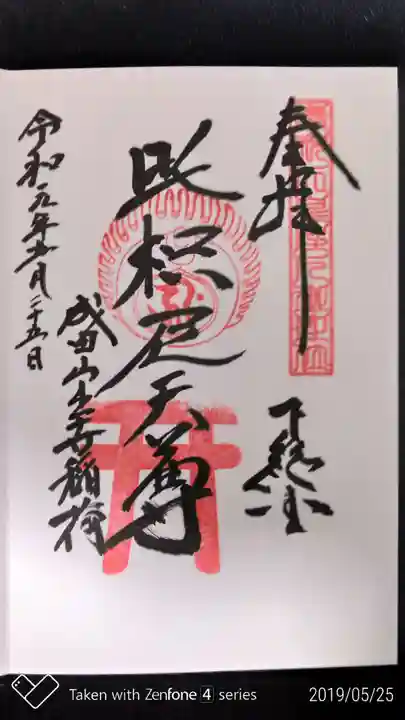 奉拝
下総国
吒枳尼天尊
成田山出世稲荷
令和元年五月二十五日
Taken with Zenfone 4 series
2019/05/25